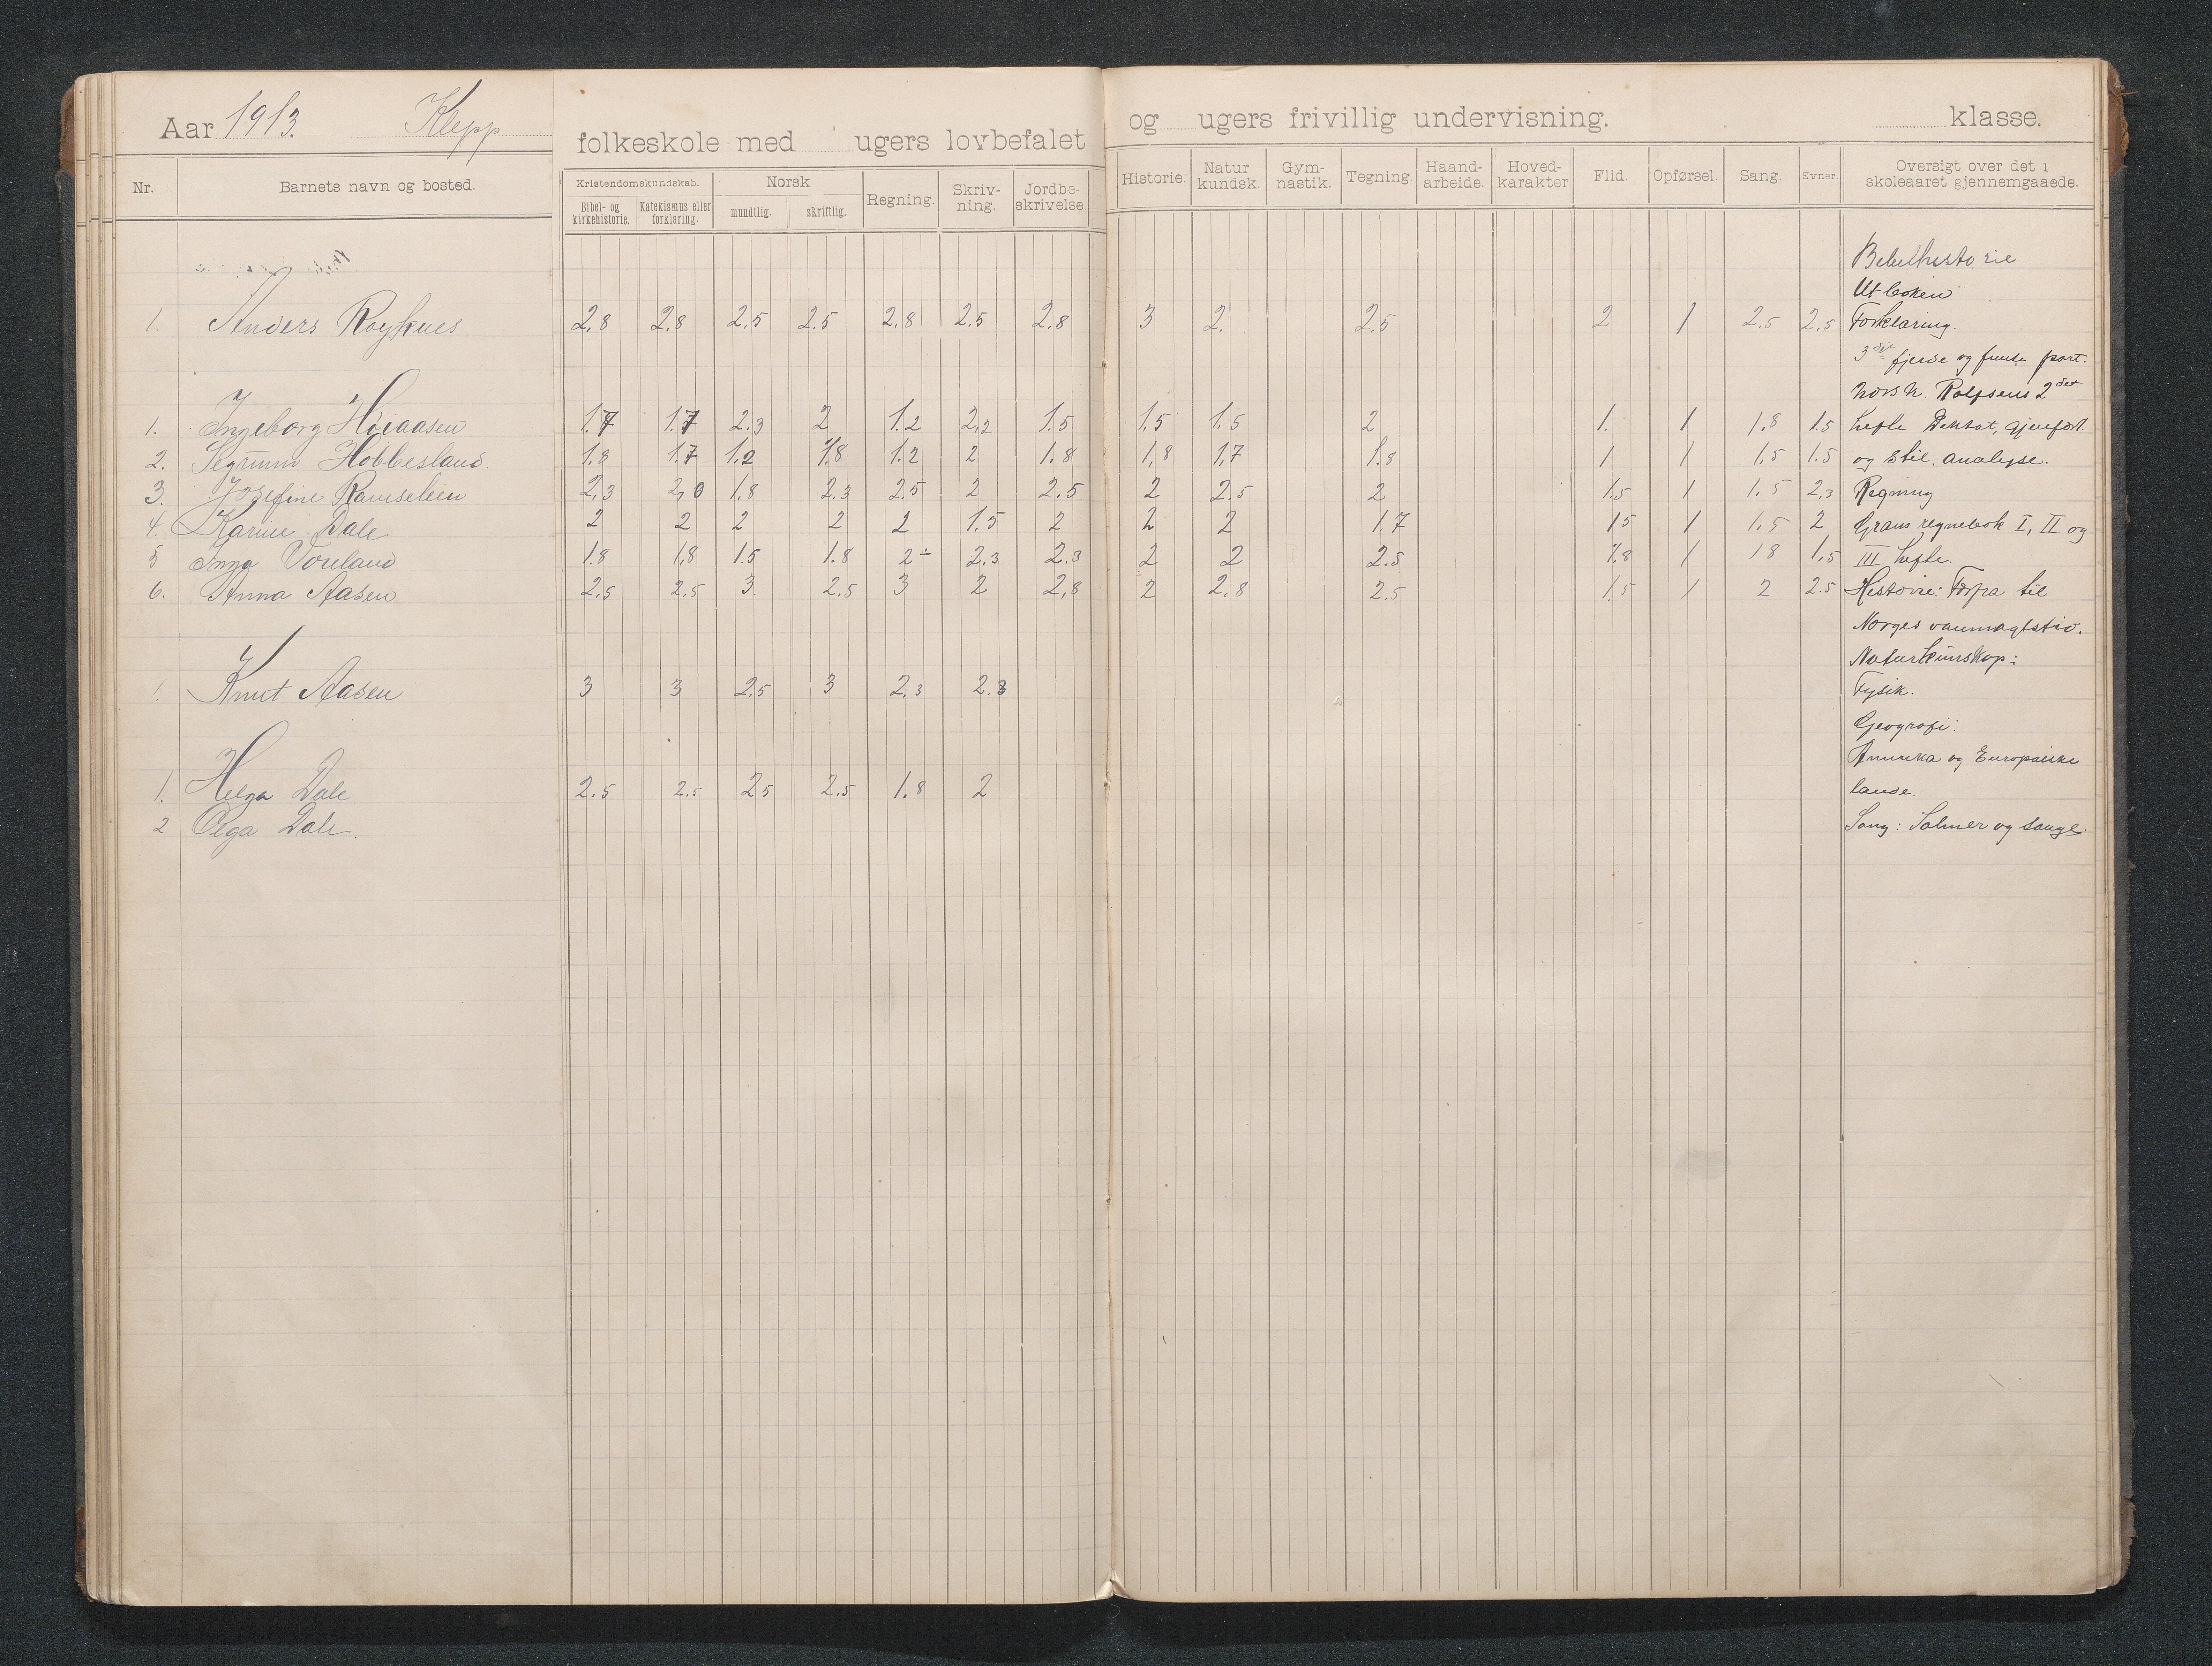 Aar 1913. Klepp folkeskole med ugers lovbefalet og ugers frivillig undervisning. klasse.
Nr. Barnets navn og bosted. Kristendomskundskab. Bibel- og kirkehistorie. Katekismus eller forklaring. Norsk mundtlig. skriftlig. Regning. Skriv-ning. Jordbe-skrivelse. Historie. Natur kundsk. Gym-nastik. Tegning Haand-arbeide. Hoved-karakter Flid. Opførsel. Sang. Evner. Oversigt over det i skoleaaret gjennemgaaede.
Bibelhistorie
Ut boken
1. Anders Røysnes 2,8 2.8 2.5 2.5 2,8 2.5 2.8 3 2. 2.5 2 1 2.5 2.5 Forklaring.
3die fjerde og femte part.
Norsk. Rolfsens 2det
1. Ingeborg Høiaasen 1.7 1.7 2.3 2 1.2 2,2 1.5 1,5 1.5 2 1. 1 1,8 1.5 hefte Diktat, gjenfort.
2. Sigrunn Hobbesland. 1.8 1.7 1.2 1.8 1.2 2 1.8 1,8 1,7 1.8 1 1 1,5 1.5 og Stil. analyse.
3. Josefine 2,3 2,0 1.8 2.3 2.5 2 2.5 2 2.5 2 1.5 1 1.5 2,3 Regning
4. Karine Dale 2 2 2 2 2 1.5 2 2 2 1.7 15 1 1,5 2 Grans regnebok I, II og
5 Inga Voreland 1.8 1,8 1.5 1.8 2÷ 2.3 2.3 2 2 2.5 1.8 1 18 1,5 III hefte.
6. Anna Aasen 2,5 2.5 3. 2.5 3 2 2,8 2 2,8 2.5 1.5 1 2 2.5 Historie: Forfra til
Norges vanmagtstid.
Naturkunskap:
1. Knut Aasen 3 3 2.5 3 2,3 2.3 Fysik.
Geografi:
Amerika og Europæiske
1. Helga Dale 2.5 2.5 25 2.5 1.8 2 lande.
2 Olga Dale. Sang: Salmer og sange.